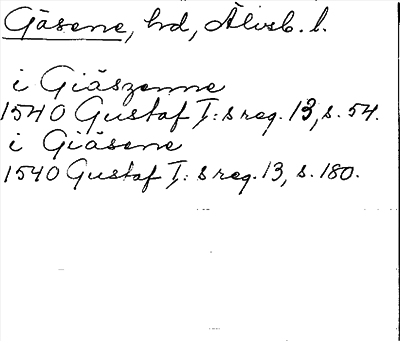 Gäsene, hd, Älvsb. l.
i Giäszenne
1540 Gustaf I:s reg. 13, s. 54.
i Giäsene
1540 Gustaf I:s reg. 13, s. 180.